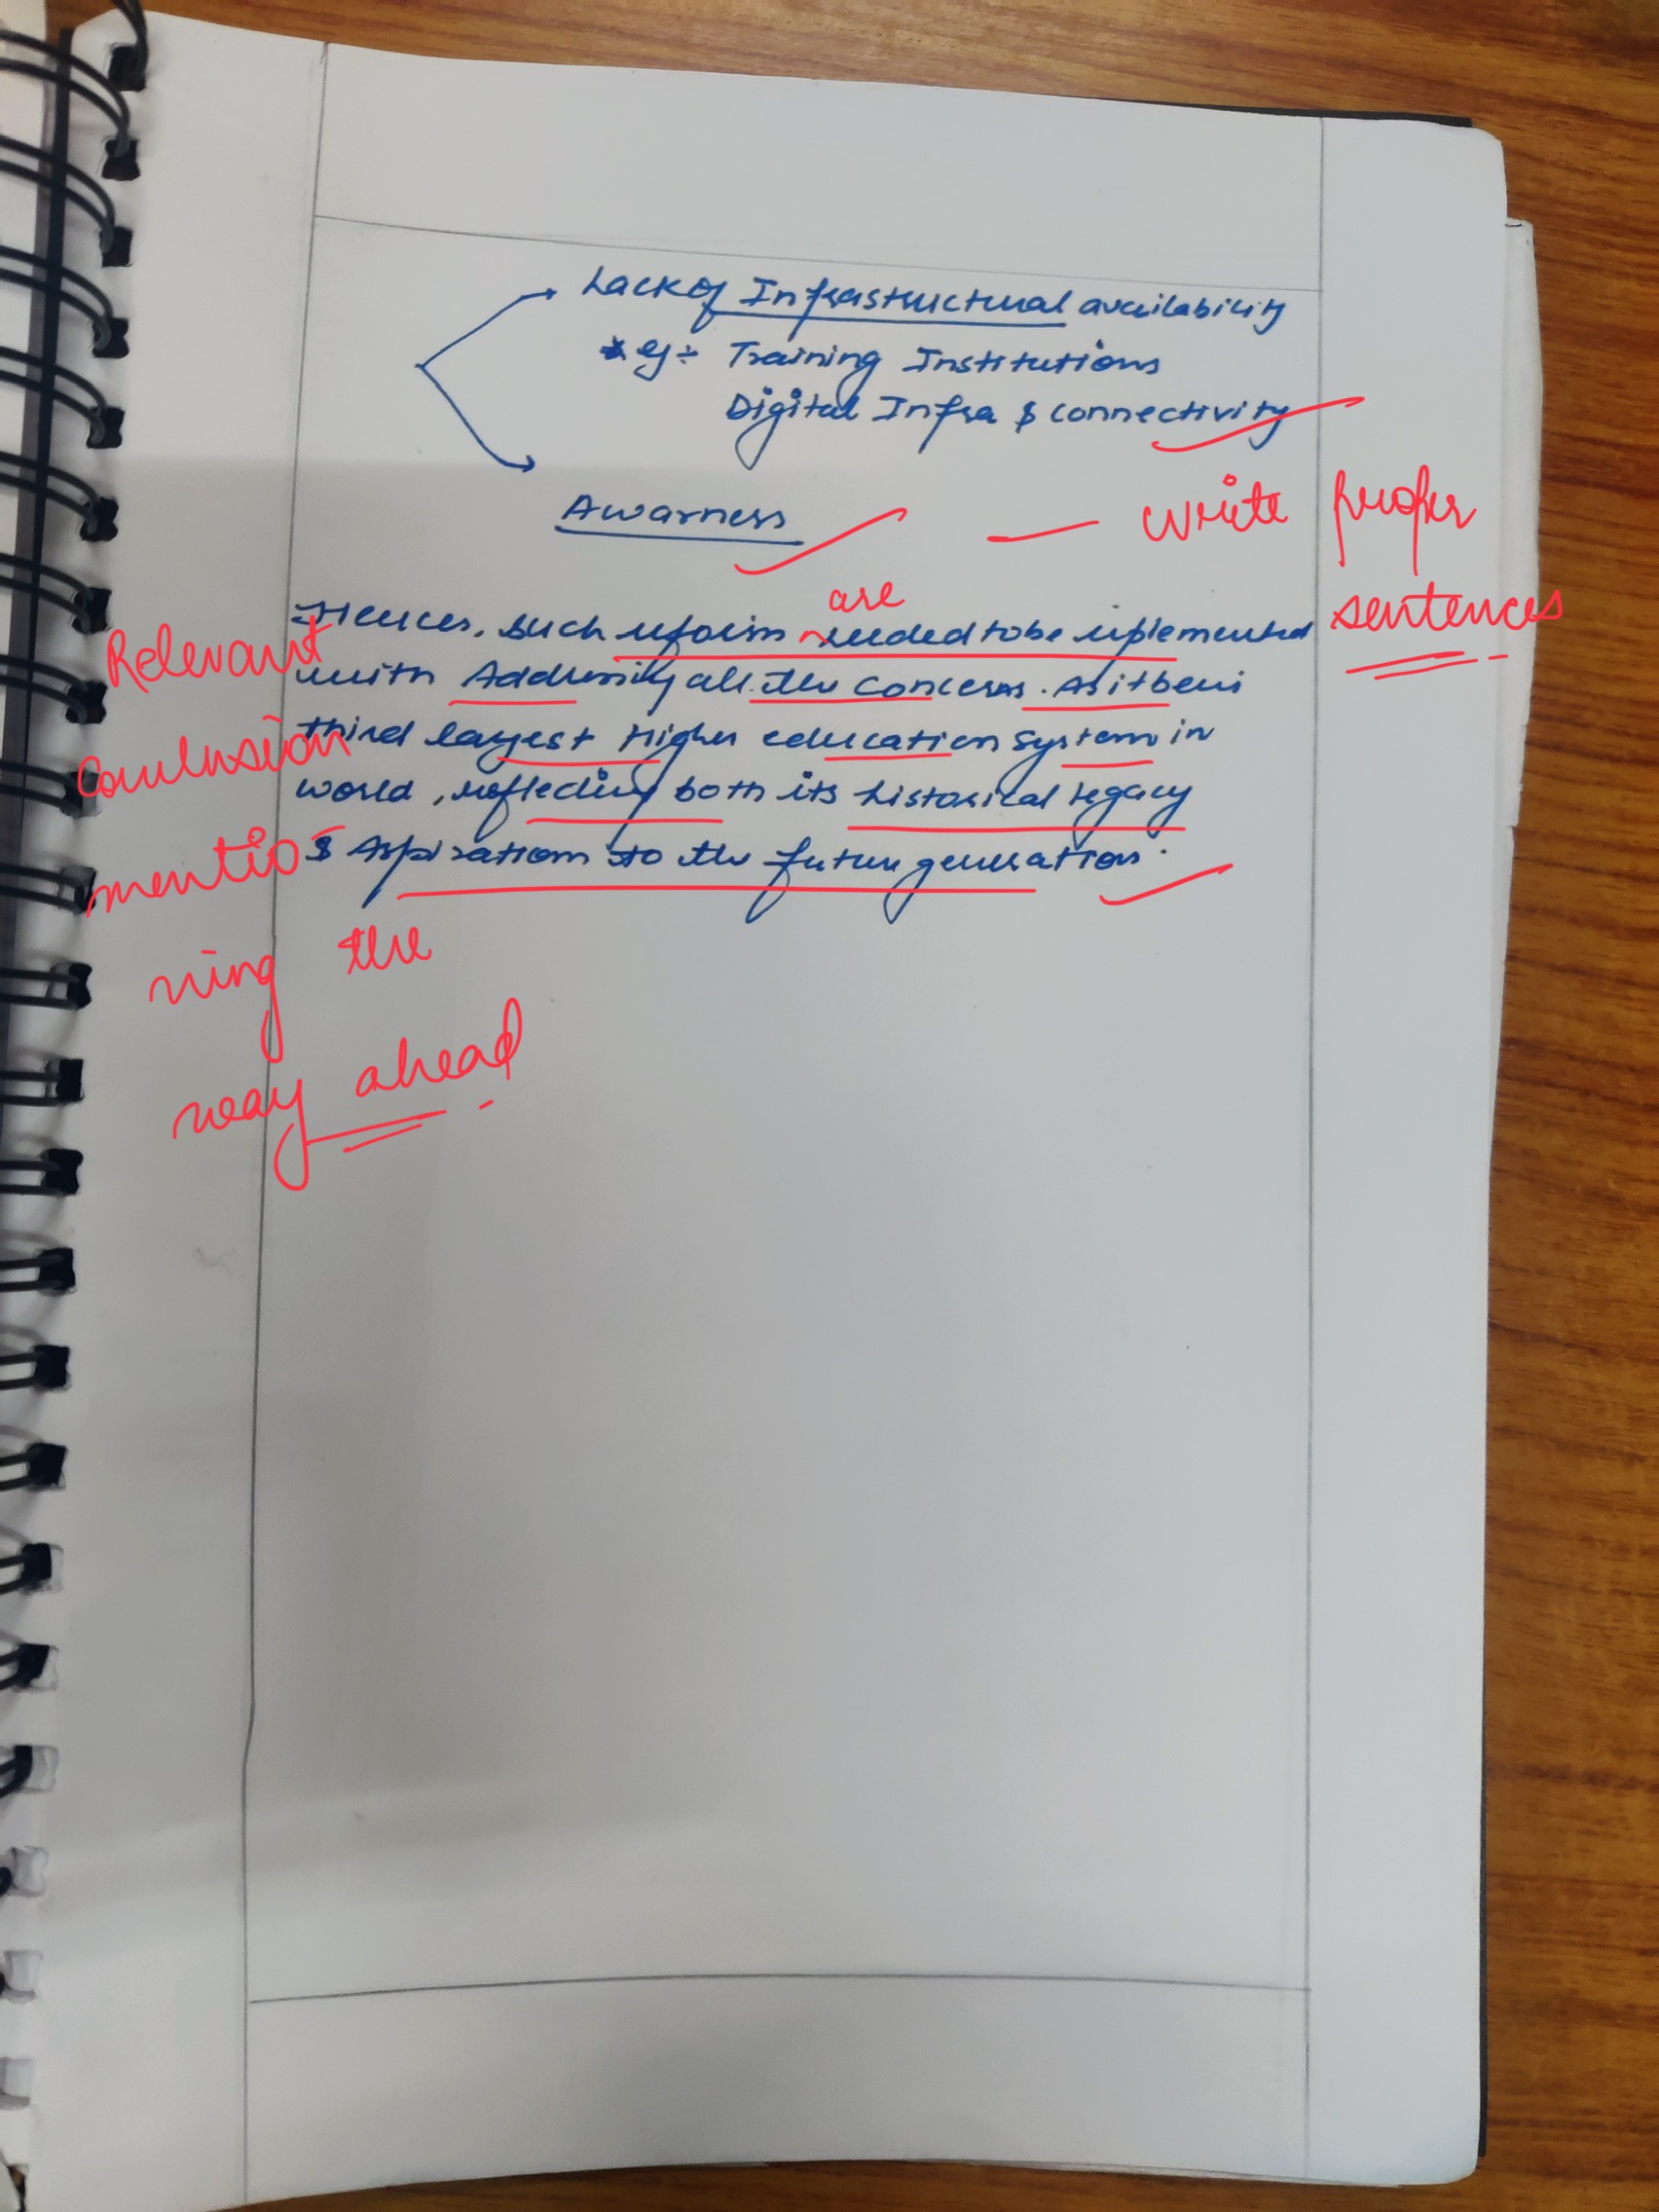 Lack of Infrastructural availability
eg÷ Training Institutions
Digital Infra & connectivity
Awarness
— write proper
sentences
are
Hences, such reform needed to be implemented
with Addressing all the concerns. As it being
third largest Higher education system in
world, reflecting both its historical legacy
& Aspirations to the future generation.
Relevant
conclusion
mentio-
ning the
way ahead